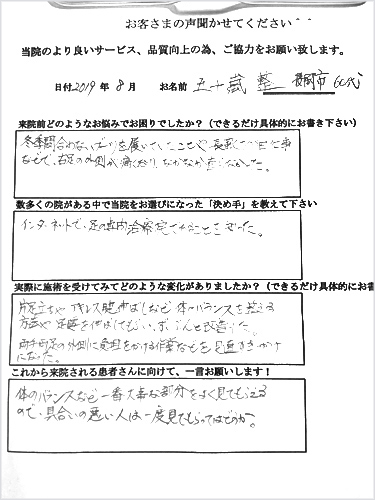 お客さまの声聞かせてください＾＾
当院のより良いサービス、品質向上の為、ご協力をお願い致します。
日付 2019 年 8 月 お名前 五十嵐 整 長岡市 60代
来院前どのようなお悩みでお困りでしたか？（できるだけ具体的にお書き下さい）
冬季間合わない
なかなか
数多くの院がある中で当院をお選びになった「決め手」を教えて下さい
インターネットで、足の専門治療院
実際に施術を受けてみてどのような変化がありましたか？（できるだけ具体的にお書
片足立ちやアキレス腱伸ばしなど体のバランスを整える
方法や足腰を伸ばしてもらい、ずいぶんと改善した。
両手両足の外側に負担をかける作業などを見直すきっかけ
になった。
これから来院される患者さんに向けて、一言お願いします！
体のバランスなど一番大事な部分をよく見てもらえる
ので、具合いの悪い人は一度見てもらってはどのか。